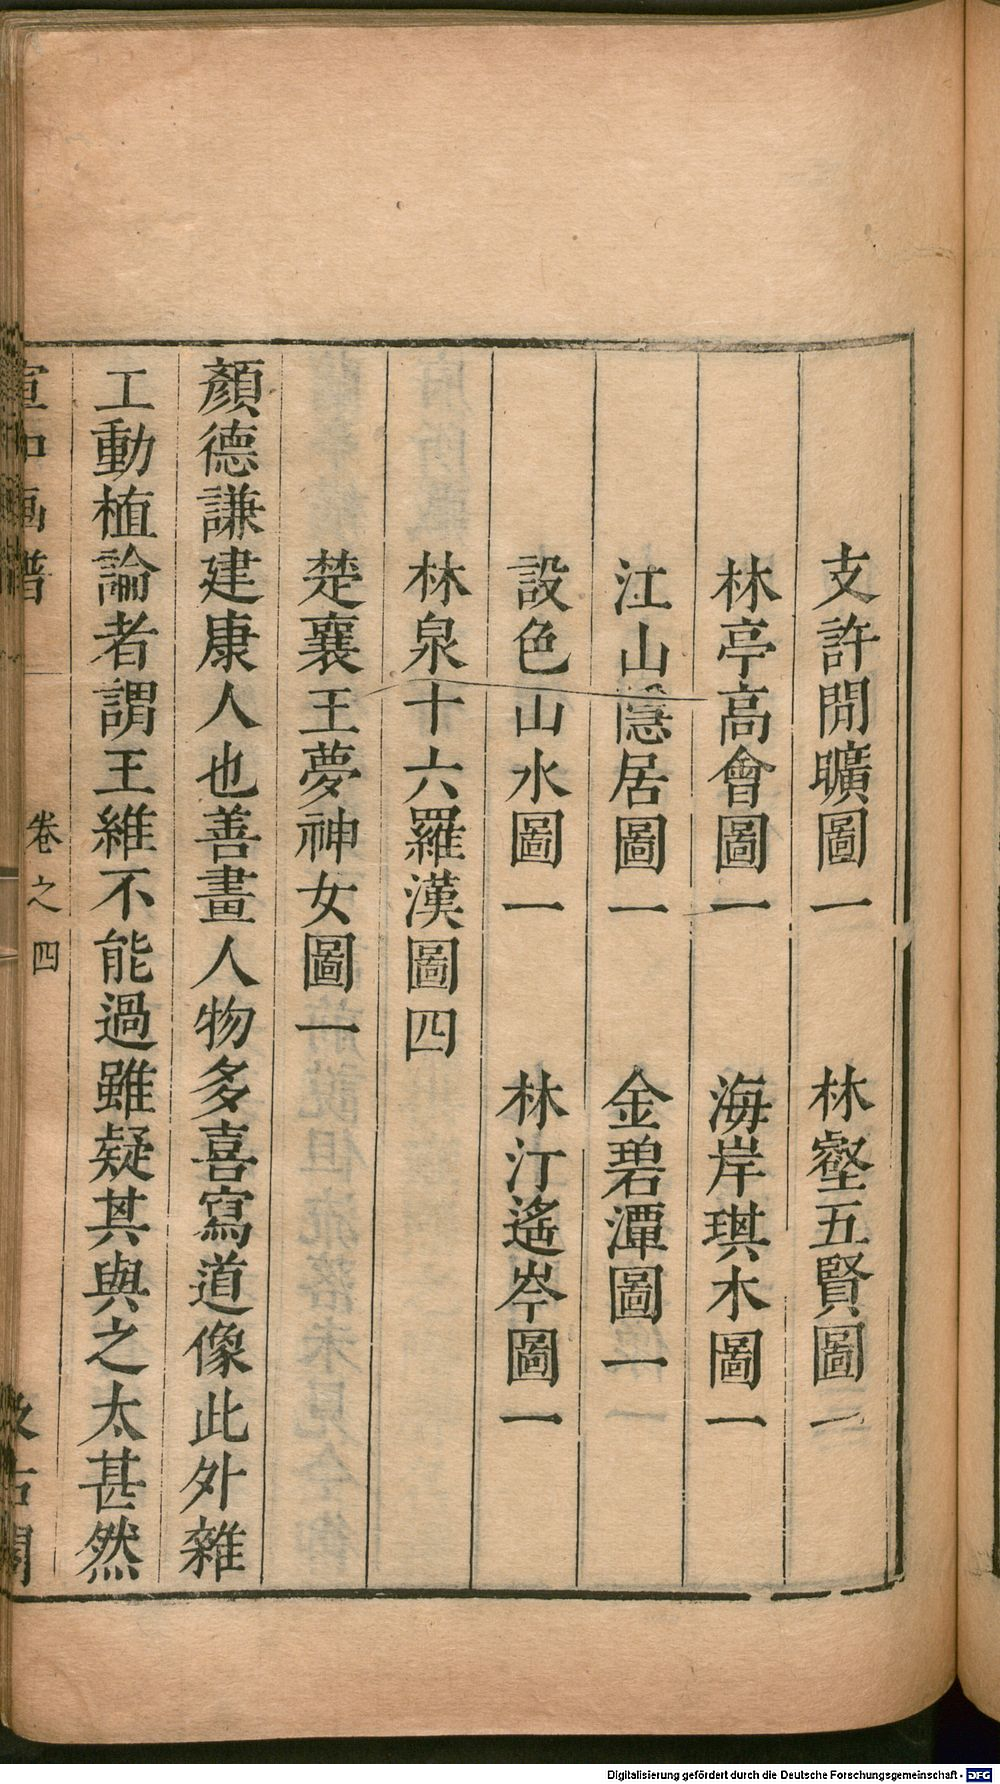 支許閒曠圖一　林壑五賢圖一
林亭高會圖一　海岸琪木圖一
江山隱居圖一　金碧潭圖一
設色山水圖一　林汀遙岑圖一
林泉十六羅漢圖四
楚襄王夢神女圖一
顏德謙建康人也善畫人物多喜寫道像此外雜
工動植論者謂王維不能過雖疑其與之太甚然
宣和画譜　卷之四　汲古閣
Digitalisierung gefördert durch die Deutsche Forschungsgemeinschaft - DFG